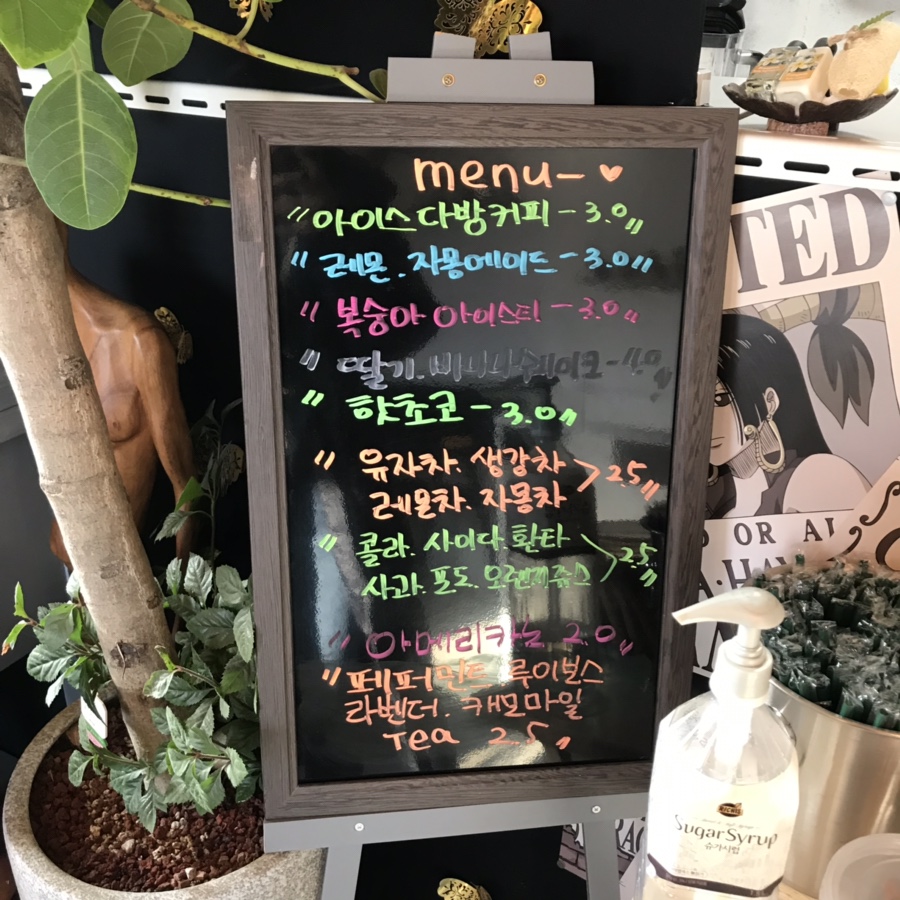 menu- ♥
" 아이스 다방커피 - 3.0 "
" 레몬 . 자몽에이드 - 3.0 "
" 복숭아 아이스티 - 3.0 "
" 딸기. 바나나쉐이크 - 4.0 "
" 핫초코 - 3.0 "
" 유자차. 생강차 > 2.5 "
레몬차. 자몽차
" 콜라. 사이다. 환타 > 2.5 "
사과. 포도. 오렌지쥬스
" 아메리카노 2.0 "
" 페퍼민트 루이보스
라벤더. 캐모마일
Tea 2.5 "
TED
OR AL
Sugar Syrup
슈가시럽